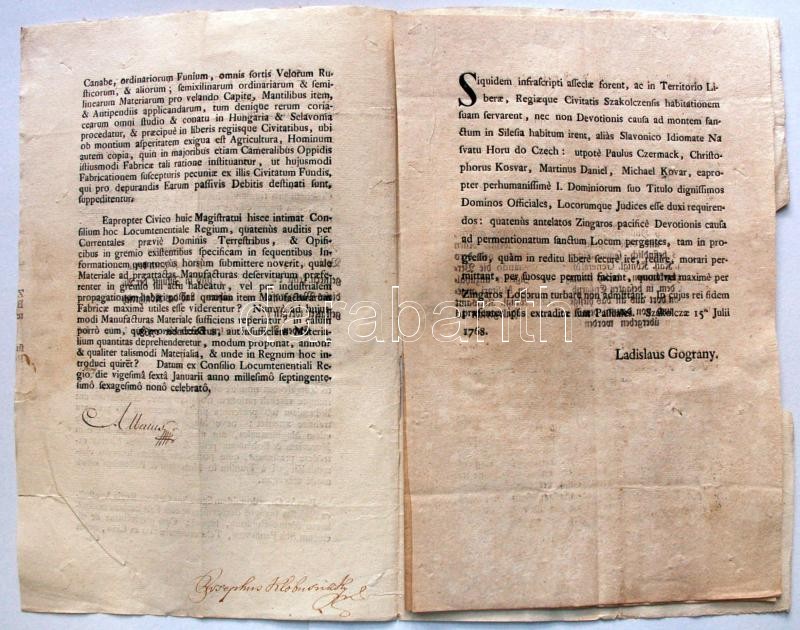 Canabe, ordinariorum Funium, omnis sortis Velorum Ru-
sticorum, & aliorum; semixilinarum ordinariorum & semi-
linearum Materiarum pro velando Capite, Mantilibus item,
& Antipendiis applicandarum, tum denique rerum coria-
cearum omni studio & conatu in Hungaria & Selavonia
procedatur, & præcipuè in liberis regiisque Civitatibus, ubi
ob montium asperitatem exigua est Agricultura, Hominum
autem copia, quin in majoribus etiam Cameralibus Oppidis
istiusmodi Fabricæ tali ratione instituantur, ut hujusmodi
Fabricationem suscepturis pecuniæ ex illis Civitatum Fundis,
qui pro depurandis Earum passivis Debitis destinati sunt,
suppeditentur.
Eapropter Civico huic Magistratui hisce intimat Con-
silium hoc Locumtenentiale Regium, quatenùs auditis per
Currentales præviè Dominis Terrestribus, & Opifi-
cibus in gremio existentibus specificam in sequentibus In-
formationem quantociùs horsum submittere noverit, quale
Materiale ad præattactas Manufacturas deserviturum præser-
enter in gremio illo jam habeatur, vel pro industrialem
propagationem haberi possit
Fabricæ maximè utiles esse viderentur?
modi Manufacturas Materiale sufficiens reperiatur? in casum
porrò eum, quo
quantitas deprehenderetur, modum propunat, annon?
& qualiter talismodi Materialia, & unde in Regnum hoc in-
troduci quiret? Datum ex Consilio Locumtenentiali Re-
gio die vigesima sextâ Januarii anno millesimô septingente-
simô sexagesimô nonô celebratô,
Josephus Klobusiczky
Siquidem infrascripti asseclæ forent, ac in Territorio Li-
beræ, Regiæque Civitatis Szakolczensis habitationem
suam servarent, nec non Devotionis causa ad montem san-
ctum in Silesia habitum irent, aliàs Slavonico Idiomate Na
svatu Horu do Czech: utpotè Paulus Czermack, Christo-
phorus Kosvar, Martinus Daniel, Michael Kovar, eapro-
pter perhumanissimè I. Dominiorum suo Titulo dignissimos
Dominos Officiales, Locorumque Judices esse duxi requiren-
dos: quatenùs antelatos Zingaros pacificè Devotionis causa
ad permentionatum sanctum Locum pergentes, tam in pro-
gressu, quàm in reditu liberè securè ire, redire, morari per-
mittant, per suosque permitti faciant, quod vel maximè per
Zingaros Locorum turbare non admittant. In cujus rei fidem
præsentes ipsis extraditæ sunt Passuales. Szakolczæ 15ª Julii
1768.
Ladislaus Gograny.
darabanth